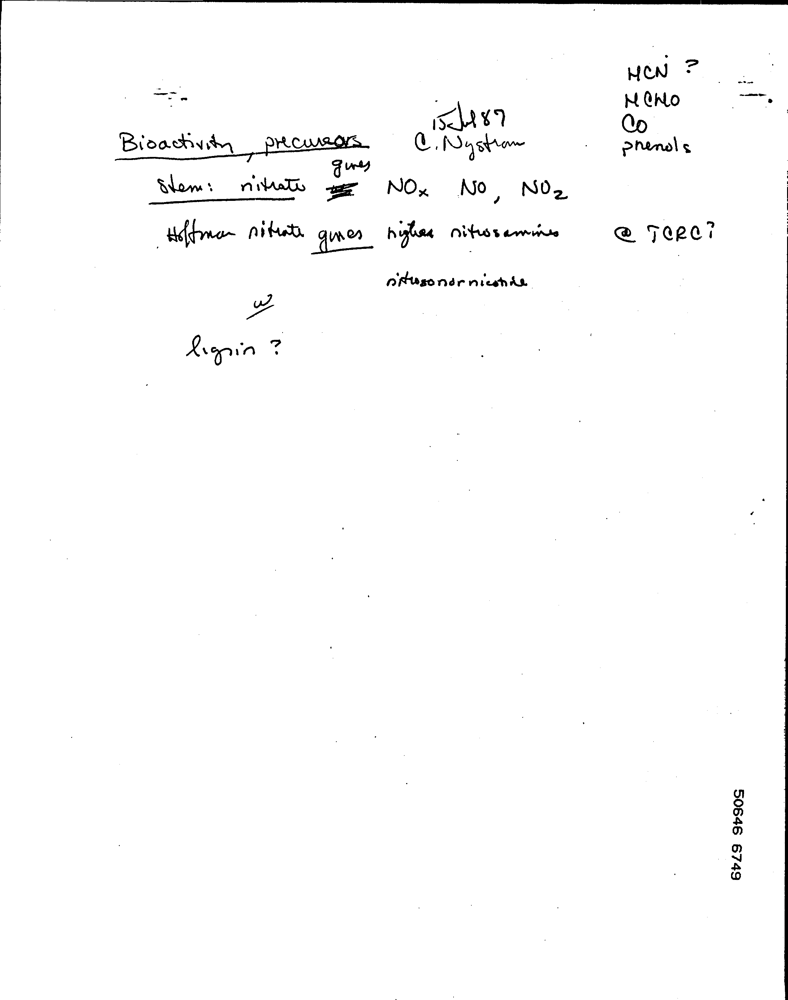 HCN ?
HCHO
CO
phenols
15 Jul 87
Bioactivity, precursors C. Nystrom
gives
Stem: nitrate NOx NO, NO2
Hoffman nitrate gives higher nitrosamines @ TCRC?
nitrosonornicotine
w
lignin ?
50646 6749